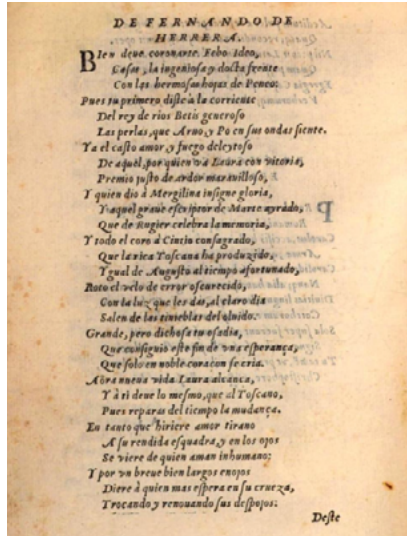 DE FERNANDO DE
HERRERA.
BIen deue coronarte Febo Ideo,
Cesar, la ingeniosa y docta frente
Con las hermosas hojas de Peneo:
Pues tu primero diste à la corriente
Del rey de rios Betis generoso
Las perlas, que Arno, y Po en sus ondas siente.
Ya el casto amor, y fuego deleytoso
De aquel, por quien va Laura con vitoria,
Premio justo de ardor marauilloso,
Y quien dio à Mergilina insigne gloria,
Y aquel graue escriptor de Marte ayrado,
Que de Rugier celebra la memoria,
Y todo el coro à Cintio consagrado,
Que la rica Toscana ha produzido,
Ygual de Augusto al tiempo afortunado,
Roto el velo de error oscurecido,
Con la luz que les das, al claro dia
Salen de las tinieblas del oluido.
Grande, pero dichosa tu osadia,
Que consiguio este fin de vna esperança,
Que solo en noble coraçon se cria.
Aora nueua vida Laura alcança,
Y à ti deue lo mesmo, que al Toscano,
Pues reparas del tiempo la mudança.
En tanto que hiriere amor tirano
A su rendida esquadra, y en los ojos
Se viere de quien aman inhumano:
Y por vn breue bien largos enojos
Diere à quien mas espera en su crueza,
Trocando y renouando sus despojos:
Deste